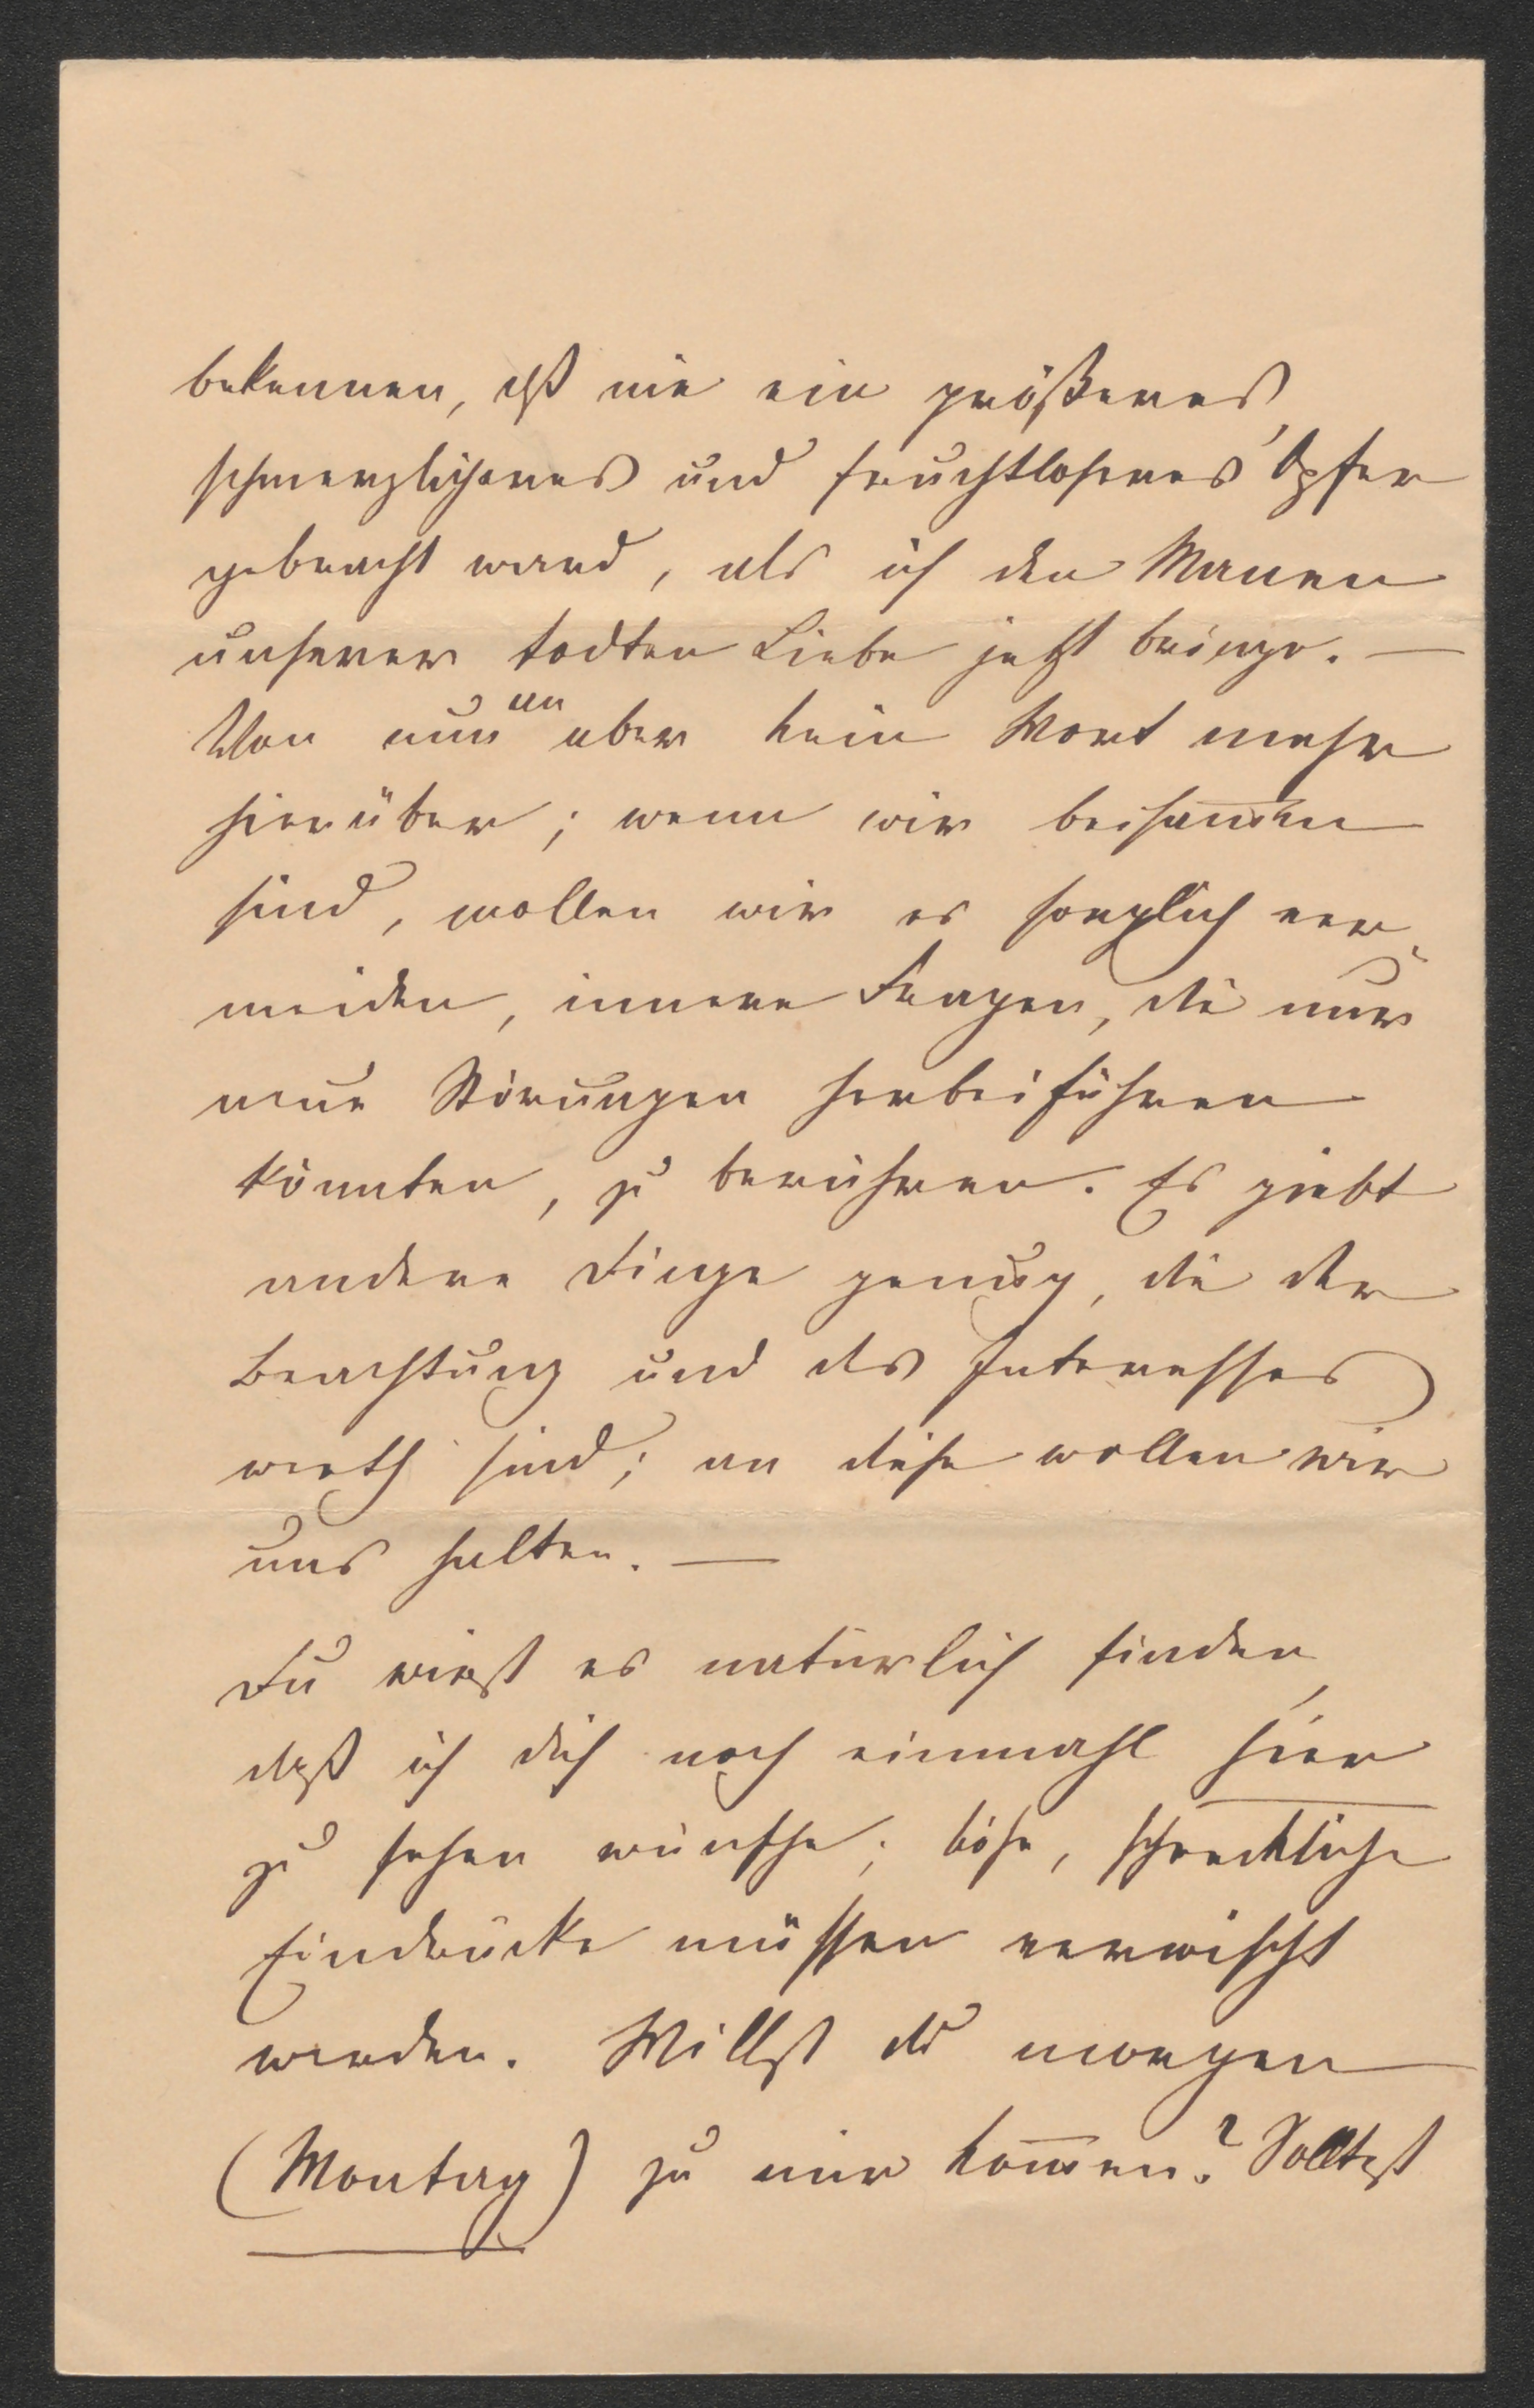 bekennen, daß nie ein größeres,
schmerzlicheres und fruchtloseres Opfer
gebracht ward, als ich den Manen
unserer todten Liebe jetzt bringe. —
Von nun an aber kein Wort mehr
hierüber; wenn wir beisam̅en
sind, wollen wir es sorglich ver-
meiden, innere Fragen, die nur
neue Störungen herbeiführen
könnten, zu berühren. Es giebt
andere Dinge genug, die der
Beachtung und des Interesses
werth sind; an diese wollen wir
uns halten. —
Du wirst es natürlich finden,
daß ich dich noch einmahl hier
zu sehen wünsche; böse, schreckliche
Eindrücke müssen verwischt
werden. Willst du morgen
(Montag) zu mir kom̅en? Solltest